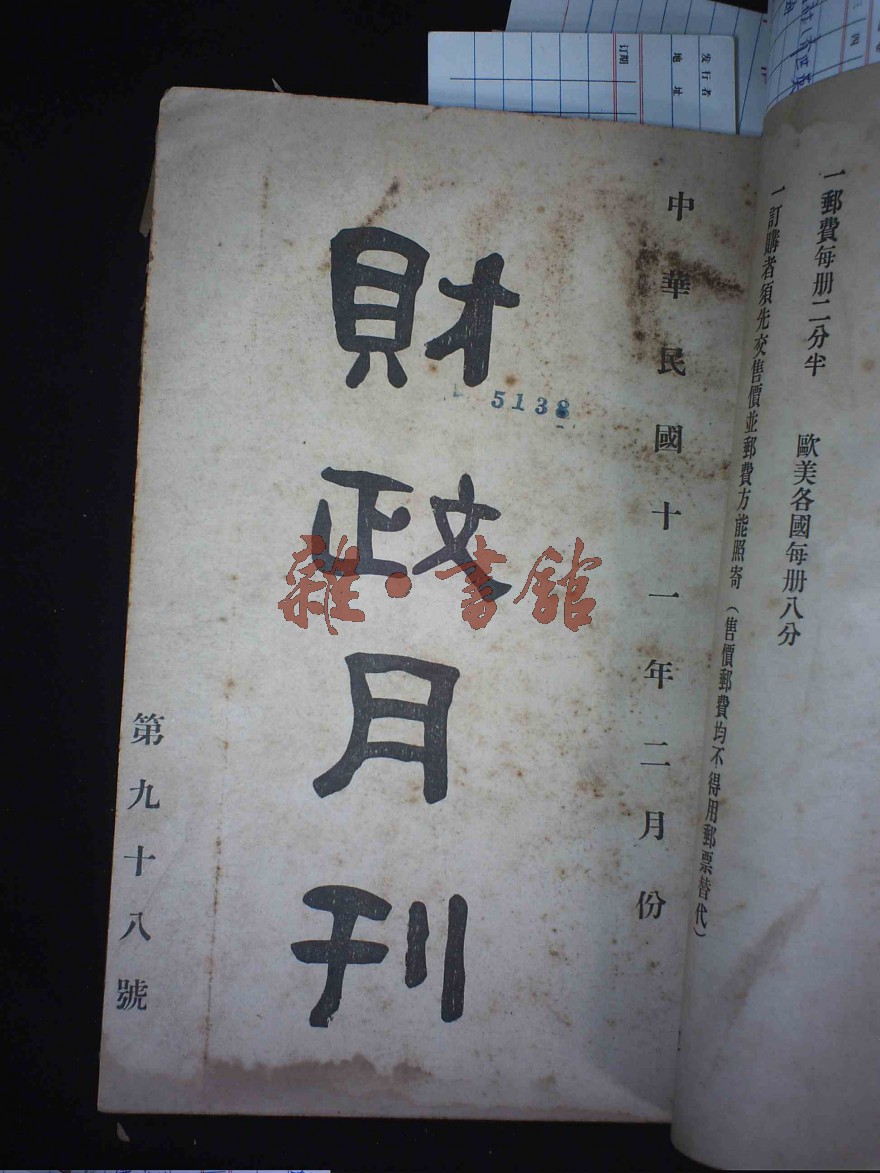 一郵費每册二分半 歐美各國每册八分
一訂購者須先交售價並郵費方能照寄（售價郵費均不得用郵票替代）
中華民國十一年二月份
財政月刊
第九十八號
5138
雜·書館
发行者
地址
订期